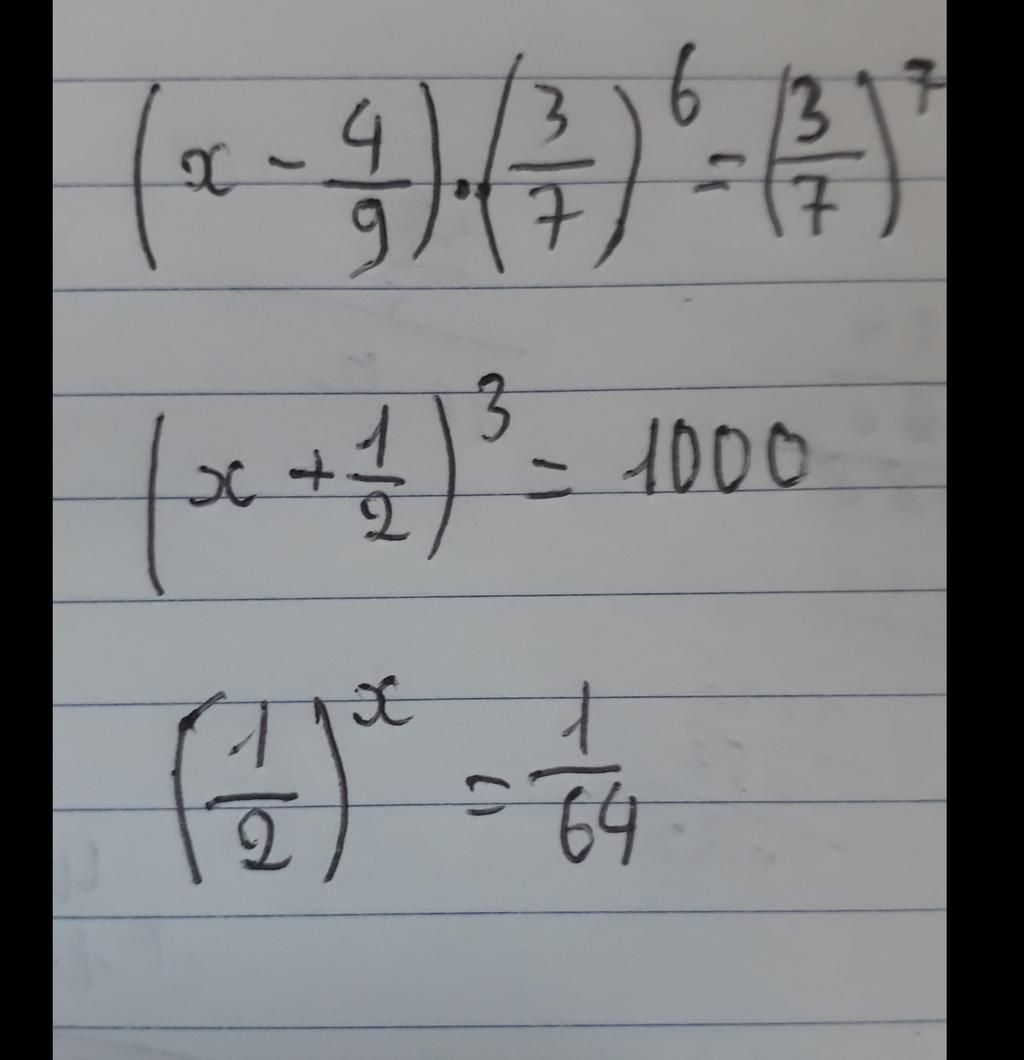 (x - 4/9) . (3/7)^6 = (3/7)^7
(x + 1/2)^3 = 1000
(1/2)^x = 1/64